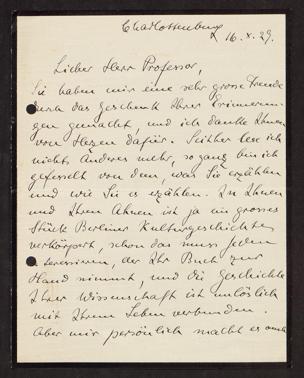 Charlottenburg
16. X. 29.
Lieber Herr Professor,
Sie haben mir eine sehr grosse Freude
durch das Geschenk Ihrer Erinnerun-
gen gemacht, und ich danke Ihnen
von Herzen dafür. Seither lese ich
nichts Anderes mehr, so ganz bin ich
gefesselt von dem, was Sie erzählen
und wie Sie es erzählen. In Ihnen
und Ihren Ahnen ist ja ein grosses
Stück Berliner Kulturgeschichte
verkörpert, schon das muss jeden
interessieren, der Ihr Buch zur
Hand nimmt, und die Geschichte
Ihrer Wissenschaft ist unlöslich
mit Ihrem Leben verbunden.
Aber mir persönlich macht es